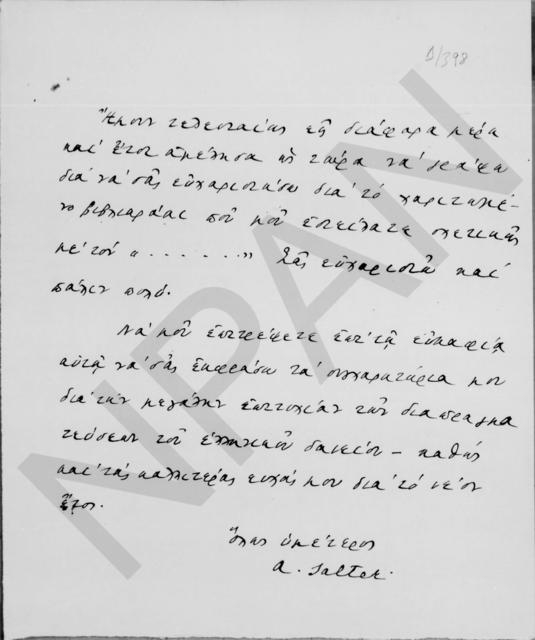 Δ/398
Ἤμουν τελευταίως εἰς διάφορα μέρη
καὶ ἔτσι ἀμέλησα ὡς τώρα νὰ γράψω
διὰ νὰ σᾶς εὐχαριστήσω διὰ τὸ χαριτωμέ-
νο βιβλιαράκι ποῦ μοῦ ἐστείλατε σχετικῶς
μὲ τὸν «.......» Σᾶς εὐχαριστῶ καὶ
πάλιν πολύ.
Νὰ μοῦ ἐπιτρέψετε ἐπὶ τῇ εὐκαιρίᾳ
αὐτῇ νὰ σᾶς ἐκφράσω τὰ συγχαρητήρια μου
διὰ τὴν μεγάλην ἐπιτυχίαν τῶν διαπραγμα
τεύσεων τοῦ ἑλληνικοῦ δανείου - καθὼς
καὶ τὰς καλλιτέρας εὐχάς μου διὰ τὸ νέον
ἔτος.
Ὅλως ὑμέτερος
A. Salter.
NPAN